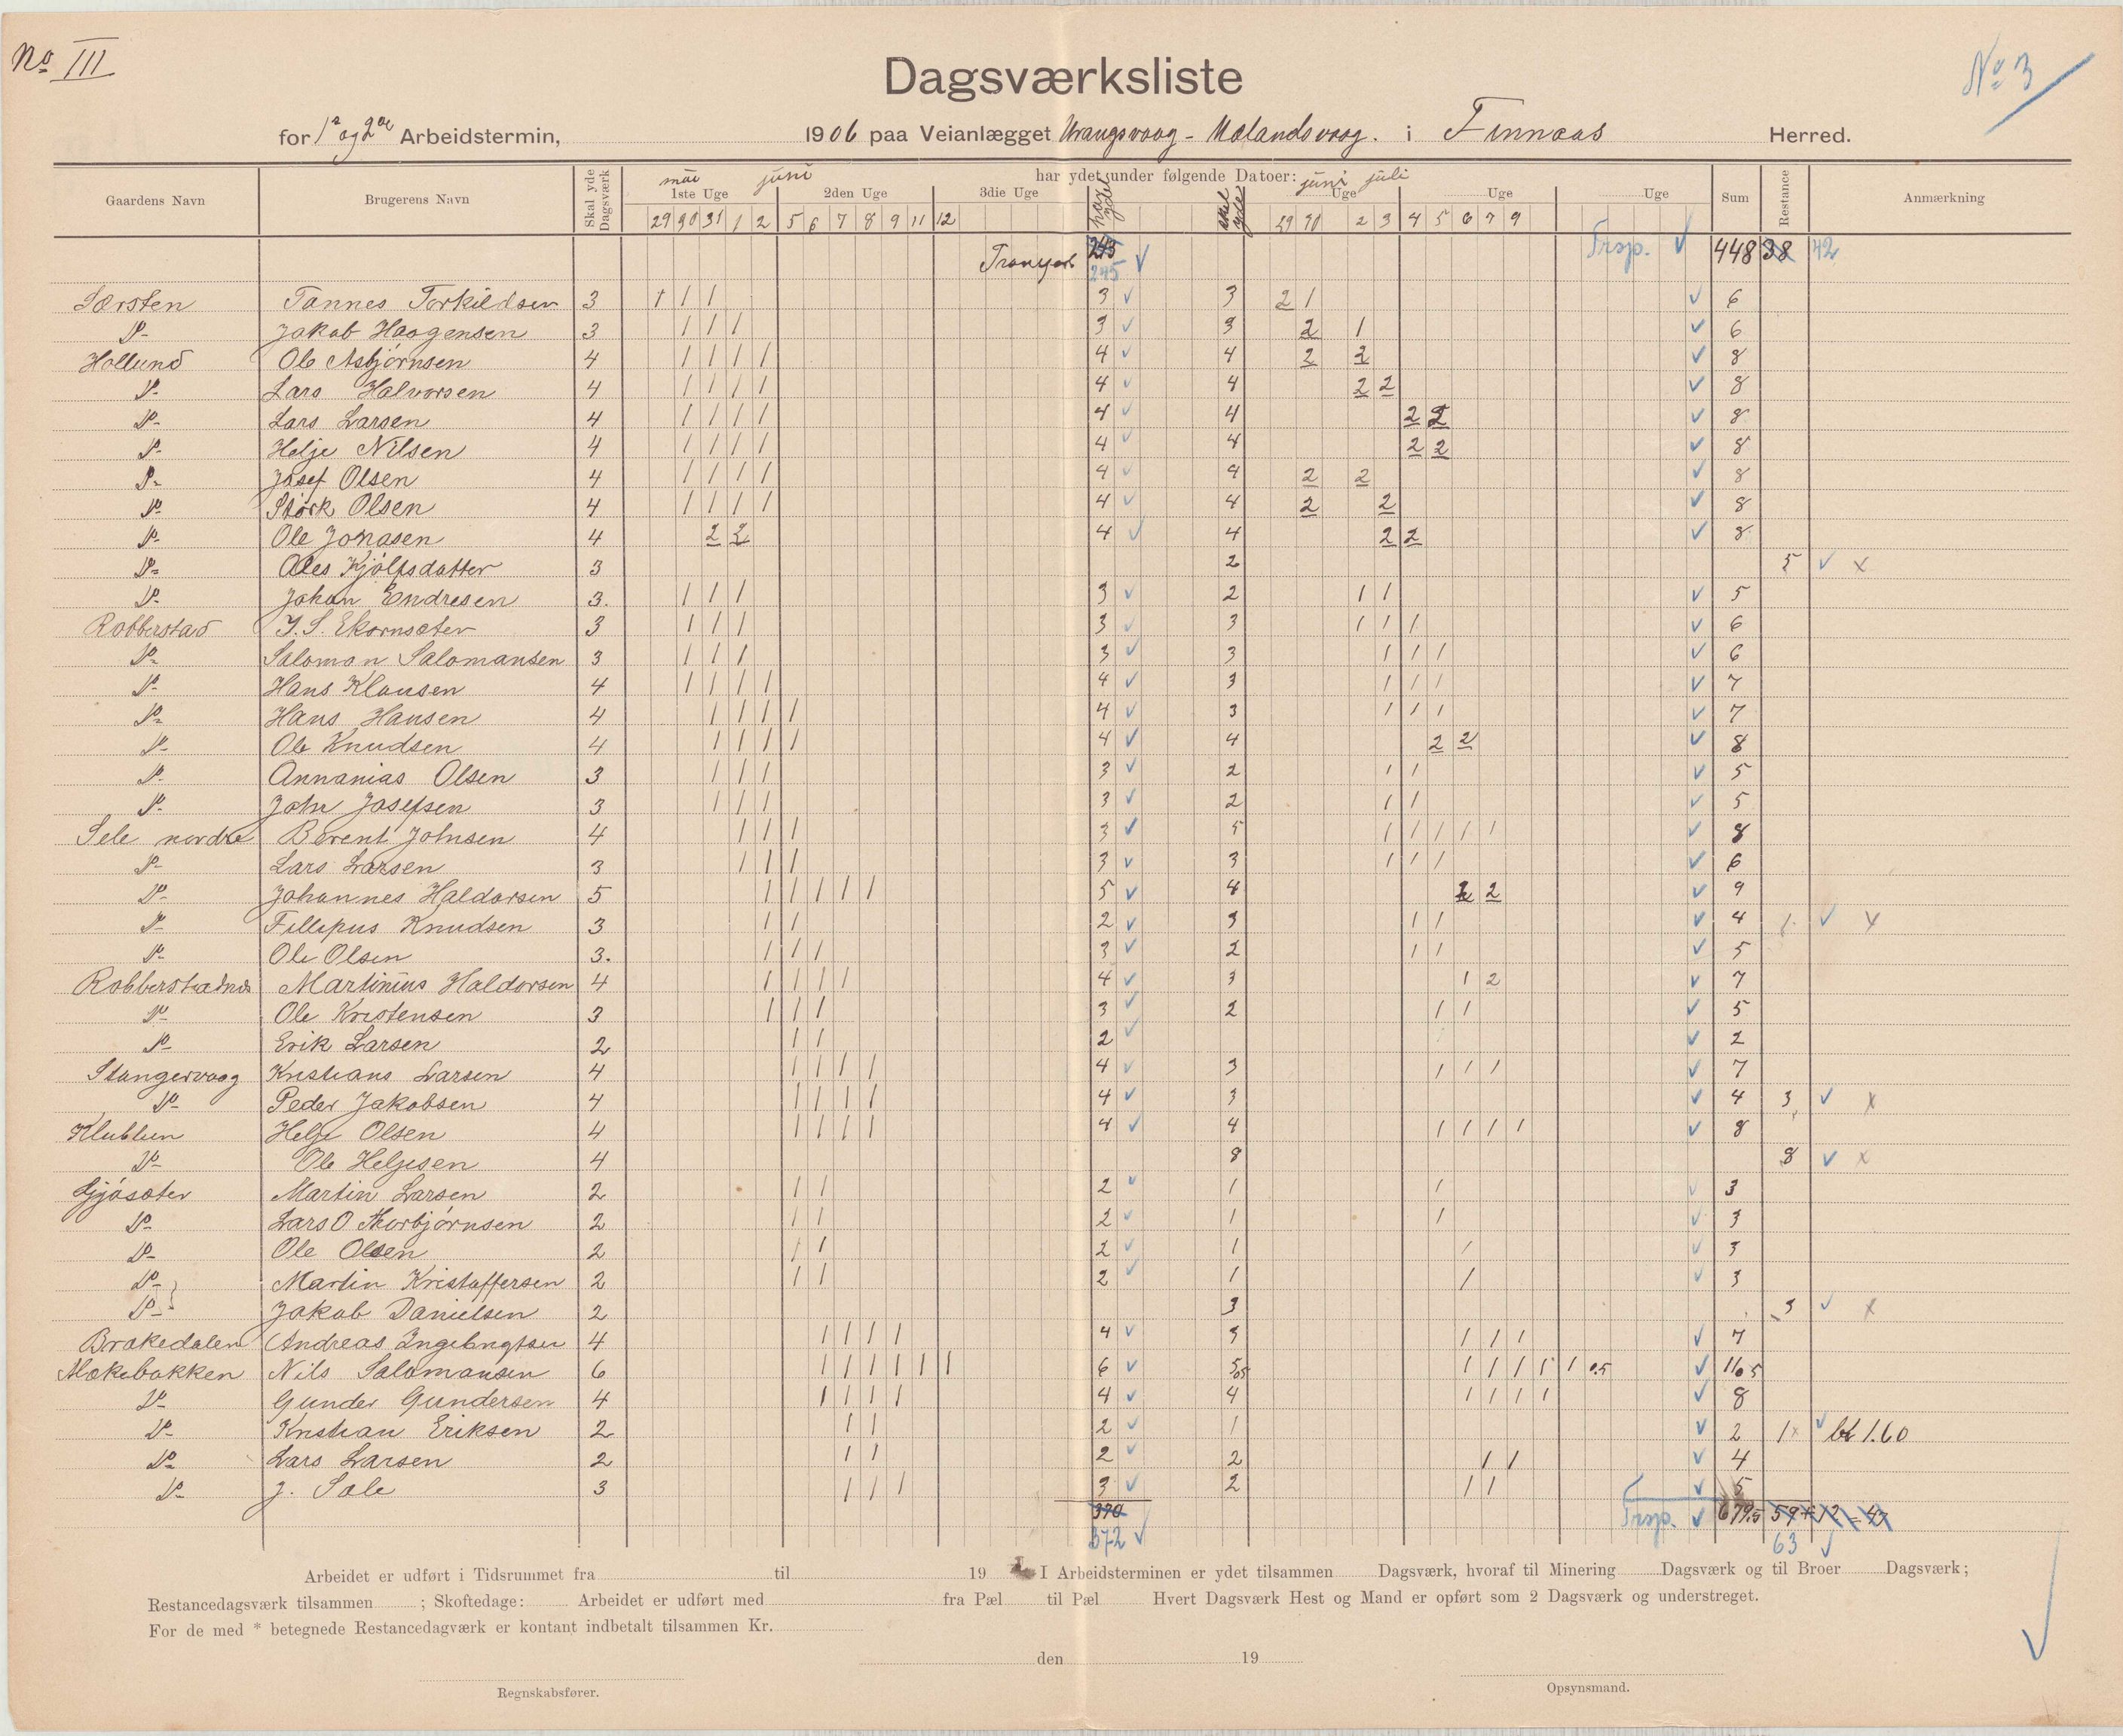 No III
No 3
Dagsværksliste
for 1ste og 2den Arbeidstermin, 1906 paa Veianlægget Urangsvaag - Mælandsvaag. i Finnaas Herred.
Gaardens Navn Brugerens Navn Skal yde Dagsværk har ydet under følgende Datoer: Sum Restance Anmærkning
mai juni juni juli
1ste Uge 2den Uge 3die Uge har ydet skal yde Uge Uge Uge
29 30 31 1 2 5 6 7 8 9 11 12 29 30 2 3 4 5 6 7 9
Transport 243 Trsp. 448 38 42
245
Særsten Tønnes Torkildsen 3 1 1 1 3 3 2 1 6
Do Jakob Haagensen 3 1 1 1 3 3 2 1 6
Hollund Ole Asbjørnsen 4 1 1 1 1 4 4 2 2 8
Do Lars Halvorsen 4 1 1 1 1 4 4 2 2 8
Do Lars Larsen 4 1 1 1 1 4 4 2 2 8
Do Helje Nilsen 4 1 1 1 1 4 4 2 2 8
Do Josef Olsen 4 1 1 1 1 4 4 2 2 8
Do Størk Olsen 4 1 1 1 1 4 4 2 2 8
Do Ole Jonasen 4 2 2 4 4 2 2 8
Do Ales Kjølfsdatter 3 2 5 x
Do Johan Endresen 3. 1 1 1 3 2 1 1 5
Robberstad J. S. Ekornsæter 3 1 1 1 3 3 1 1 1 6
Do Salomon Salomonsen 3 1 1 1 3 3 1 1 1 6
Do Hans Klausen 4 1 1 1 1 4 3 1 1 1 7
Do Hans Hansen 4 1 1 1 1 4 3 1 1 1 7
Do Ole Knudsen 4 1 1 1 1 4 4 2 2 8
Do Annanias Olsen 3 1 1 1 3 2 1 1 5
Do John Josefsen 3 1 1 1 3 2 1 1 5
Sele nordre Berent Johnsen 4 1 1 1 3 5 1 1 1 1 1 8
Do Lars Larsen 3 1 1 1 3 3 1 1 1 6
Do Johannes Haldorsen 5 1 1 1 1 1 5 4 2 2 9
Do Fillipus Knudsen 3 1 1 2 3 1 1 4 1. x
Do Ole Olsen 3. 1 1 1 3 2 1 1 5
Robberstadnes Martinius Haldorsen 4 1 1 1 1 4 3 1 2 7
Do Ole Kristensen 3 1 1 1 3 2 1 1 5
Do Erik Larsen 2 1 1 2 2
Stangervaag Kristians Larsen 4 1 1 1 1 4 3 1 1 1 7
Do Peder Jakobsen 4 1 1 1 1 4 3 4 3 x
Klubben Helje Olsen 4 1 1 1 1 4 4 1 1 1 1 8
Do Ole Heljesen 4 8 8 x
Gjøsæter Martin Larsen 2 1 1 2 1 1 3
Do Lars O Thorbjørnsen 2 1 1 2 1 1 3
Do Ole Olsen 2 1 1 2 1 1 3
Do Martin Kristoffersen 2 1 1 2 1 1 3
Do Jakob Danielsen 2 3 3 x
Brakedalen Andreas Ingebrigtsen 4 1 1 1 1 4 3 1 1 1 7
Mokebakken Nils Salomonsen 6 1 1 1 1 1 1 6 5,05 1 1 1 1 1 0.5 11,05
Do Gunder Gundersen 4 1 1 1 1 4 4 1 1 1 1 8
Do Kristian Eriksen 2 1 1 2 1 2 1 x bt 1.60
Do Lars Larsen 2 1 1 2 2 1 1 4
Do J. Sæle 3 1 1 1 3 2 1 1 5
370 Trsp. 679.5 59 + 12 = 47
372 63
Arbeidet er udført i Tidsrummet fra til 19 I Arbeidsterminen er ydet tilsammen Dagsværk, hvoraf til Minering Dagsværk og til Broer Dagsværk;
Restancedagsværk tilsammen ; Skoftedage: Arbeidet er udført med fra Pæl til Pæl Hvert Dagsværk Hest og Mand er opført som 2 Dagsværk og understreget.
For de med * betegnede Restancedagværk er kontant indbetalt tilsammen Kr.
den 19
Regnskabsfører. Opsynsmand.